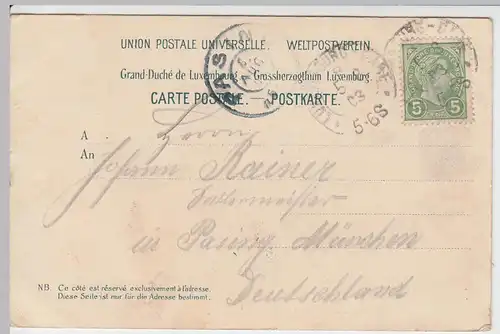 UNION POSTALE UNIVERSELLE. WELTPOSTVEREIN.
Grand-Duché de Luxembourg — Grossherzogthum Luxemburg.
CARTE POSTALE. — POSTKARTE.
5 5
5-6S
PAS
A
An Johann Rainer
Sattlermeister
in Pasing München
Deutschland
NB. Ce côté est réservé exclusivement à l'adresse.
Diese Seite ist nur für die Adresse bestimmt.